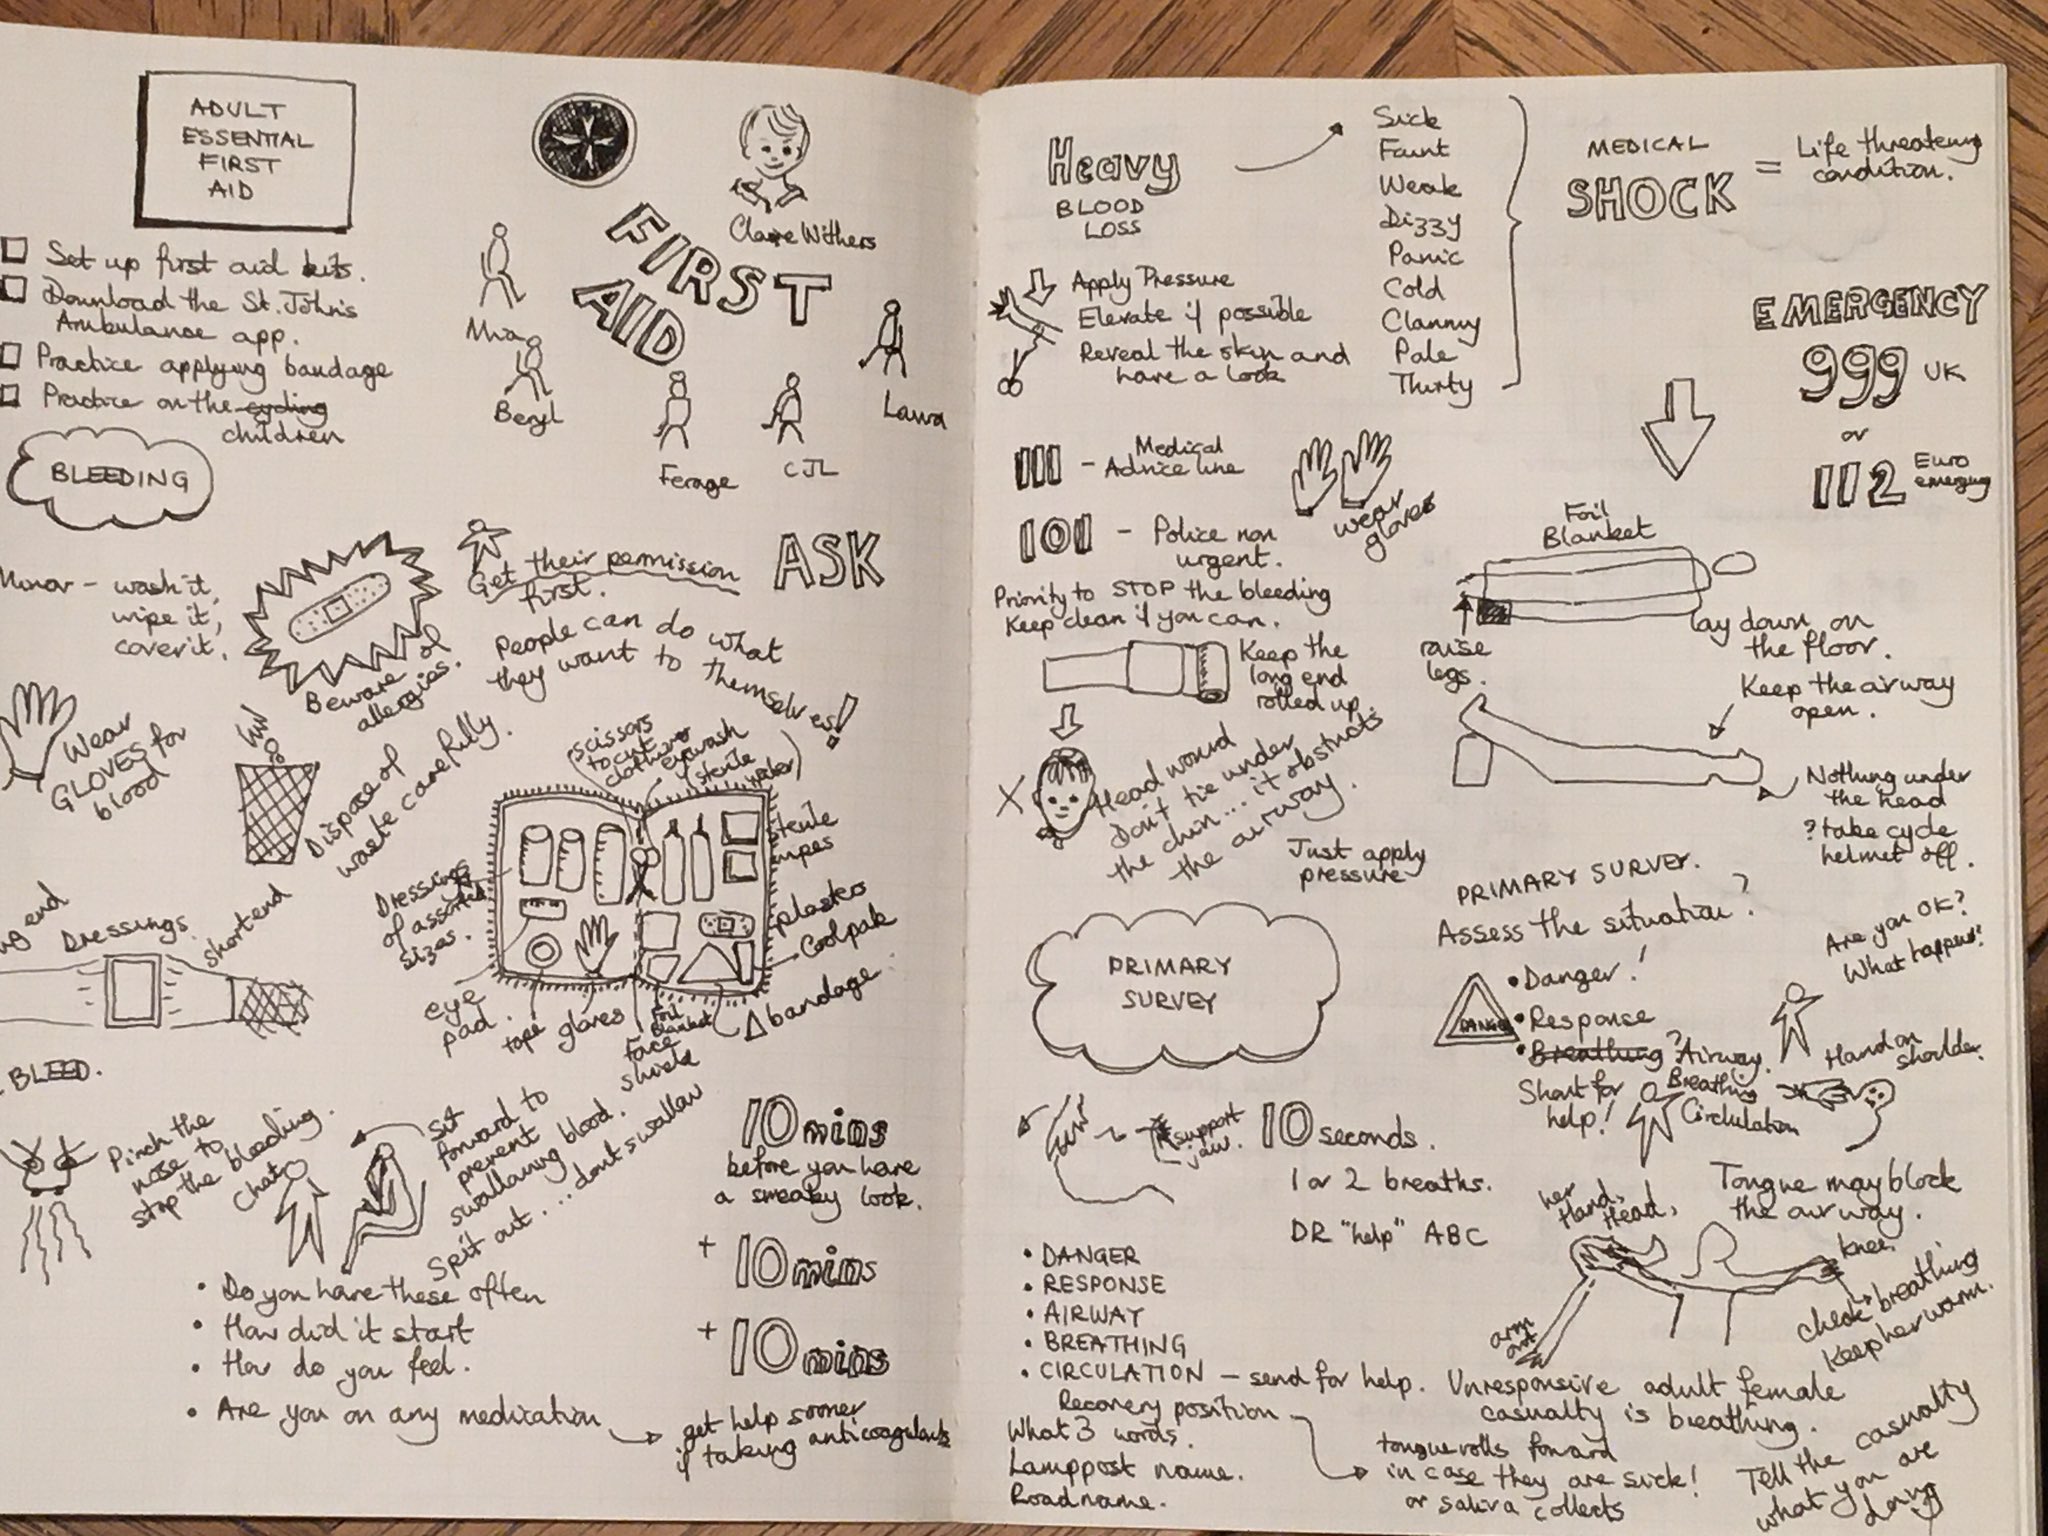 ADULT
ESSENTIAL
FIRST
AID
Set up first aid kits.
Download the St. John's
Ambulance app.
Practice applying bandage
Practice on the cycling
children
FIRST
AID
Claire Withers
Mia
Beryl
Ferage
CJL
Laura
BLEEDING
Minor - wash it,
wipe it,
cover it.
Beware of
allergies.
ASK
Get their permission
first.
People can do what
they want to themselves!
Wear
GLOVES for
blood
Dispose of
waste carefully.
scissors
to cut
clothing
eyewash
(sterile
water)
sterile
wipes
plasters
Coolpak
Δ bandage
Foil
Blanket
Face
shield
gloves
tape
eye
pad.
Dressings
of assorted
sizes.
end
Dressings.
short end
BLEED.
Pinch the
nose to
stop the bleeding.
Chat
Sit
forward to
prevent
swallowing blood.
Spit out... dont swallow
10 mins
before you have
a sneaky look.
+ 10 mins
+ 10 mins
• Do you have these often
• How did it start
• How do you feel.
• Are you on any medication
get help sooner
if taking anticoagulants
Heavy
BLOOD
LOSS
Sick
Faint
Weak
Dizzy
Panic
Cold
Clammy
Pale
Thirsty
MEDICAL
SHOCK
= Life threatening
condition.
Apply Pressure
Elevate if possible
Reveal the skin and
have a look
EMERGENCY
999 UK
or
112 Euro
emergency
111 - Medical
Advice line
101 - Police non
urgent.
wear
gloves
Priority to STOP the bleeding
Keep clean if you can.
Keep the
long end
rolled up.
X
Head wound
Don't tie under
the chin... it obstructs
the airway.
Just apply
pressure
Foil
Blanket
raise
legs.
lay down on
the floor.
Keep the airway
open.
Nothing under
the head
? take cycle
helmet off.
PRIMARY
SURVEY
PRIMARY SURVEY.
Assess the situation?
DANGER
• Danger!
• Response
• Breathing? Airway.
Breathing
Circulation
Shout for
help!
Are you OK?
What happens?
Hand on
shoulder.
support
jaw.
10 seconds.
1 or 2 breaths.
DR "help" ABC
Tongue may block
the airway.
her
Hand,
Head,
knee
arm
out
check breathing
keep her warm.
• DANGER
• RESPONSE
• AIRWAY
• BREATHING
• CIRCULATION - send for help.
Recovery position
What 3 words.
Lamppost name.
Road name.
Unresponsive adult female
casualty is breathing.
tongue rolls forward
in case they are sick!
or saliva collects
Tell the casualty
what you are
doing